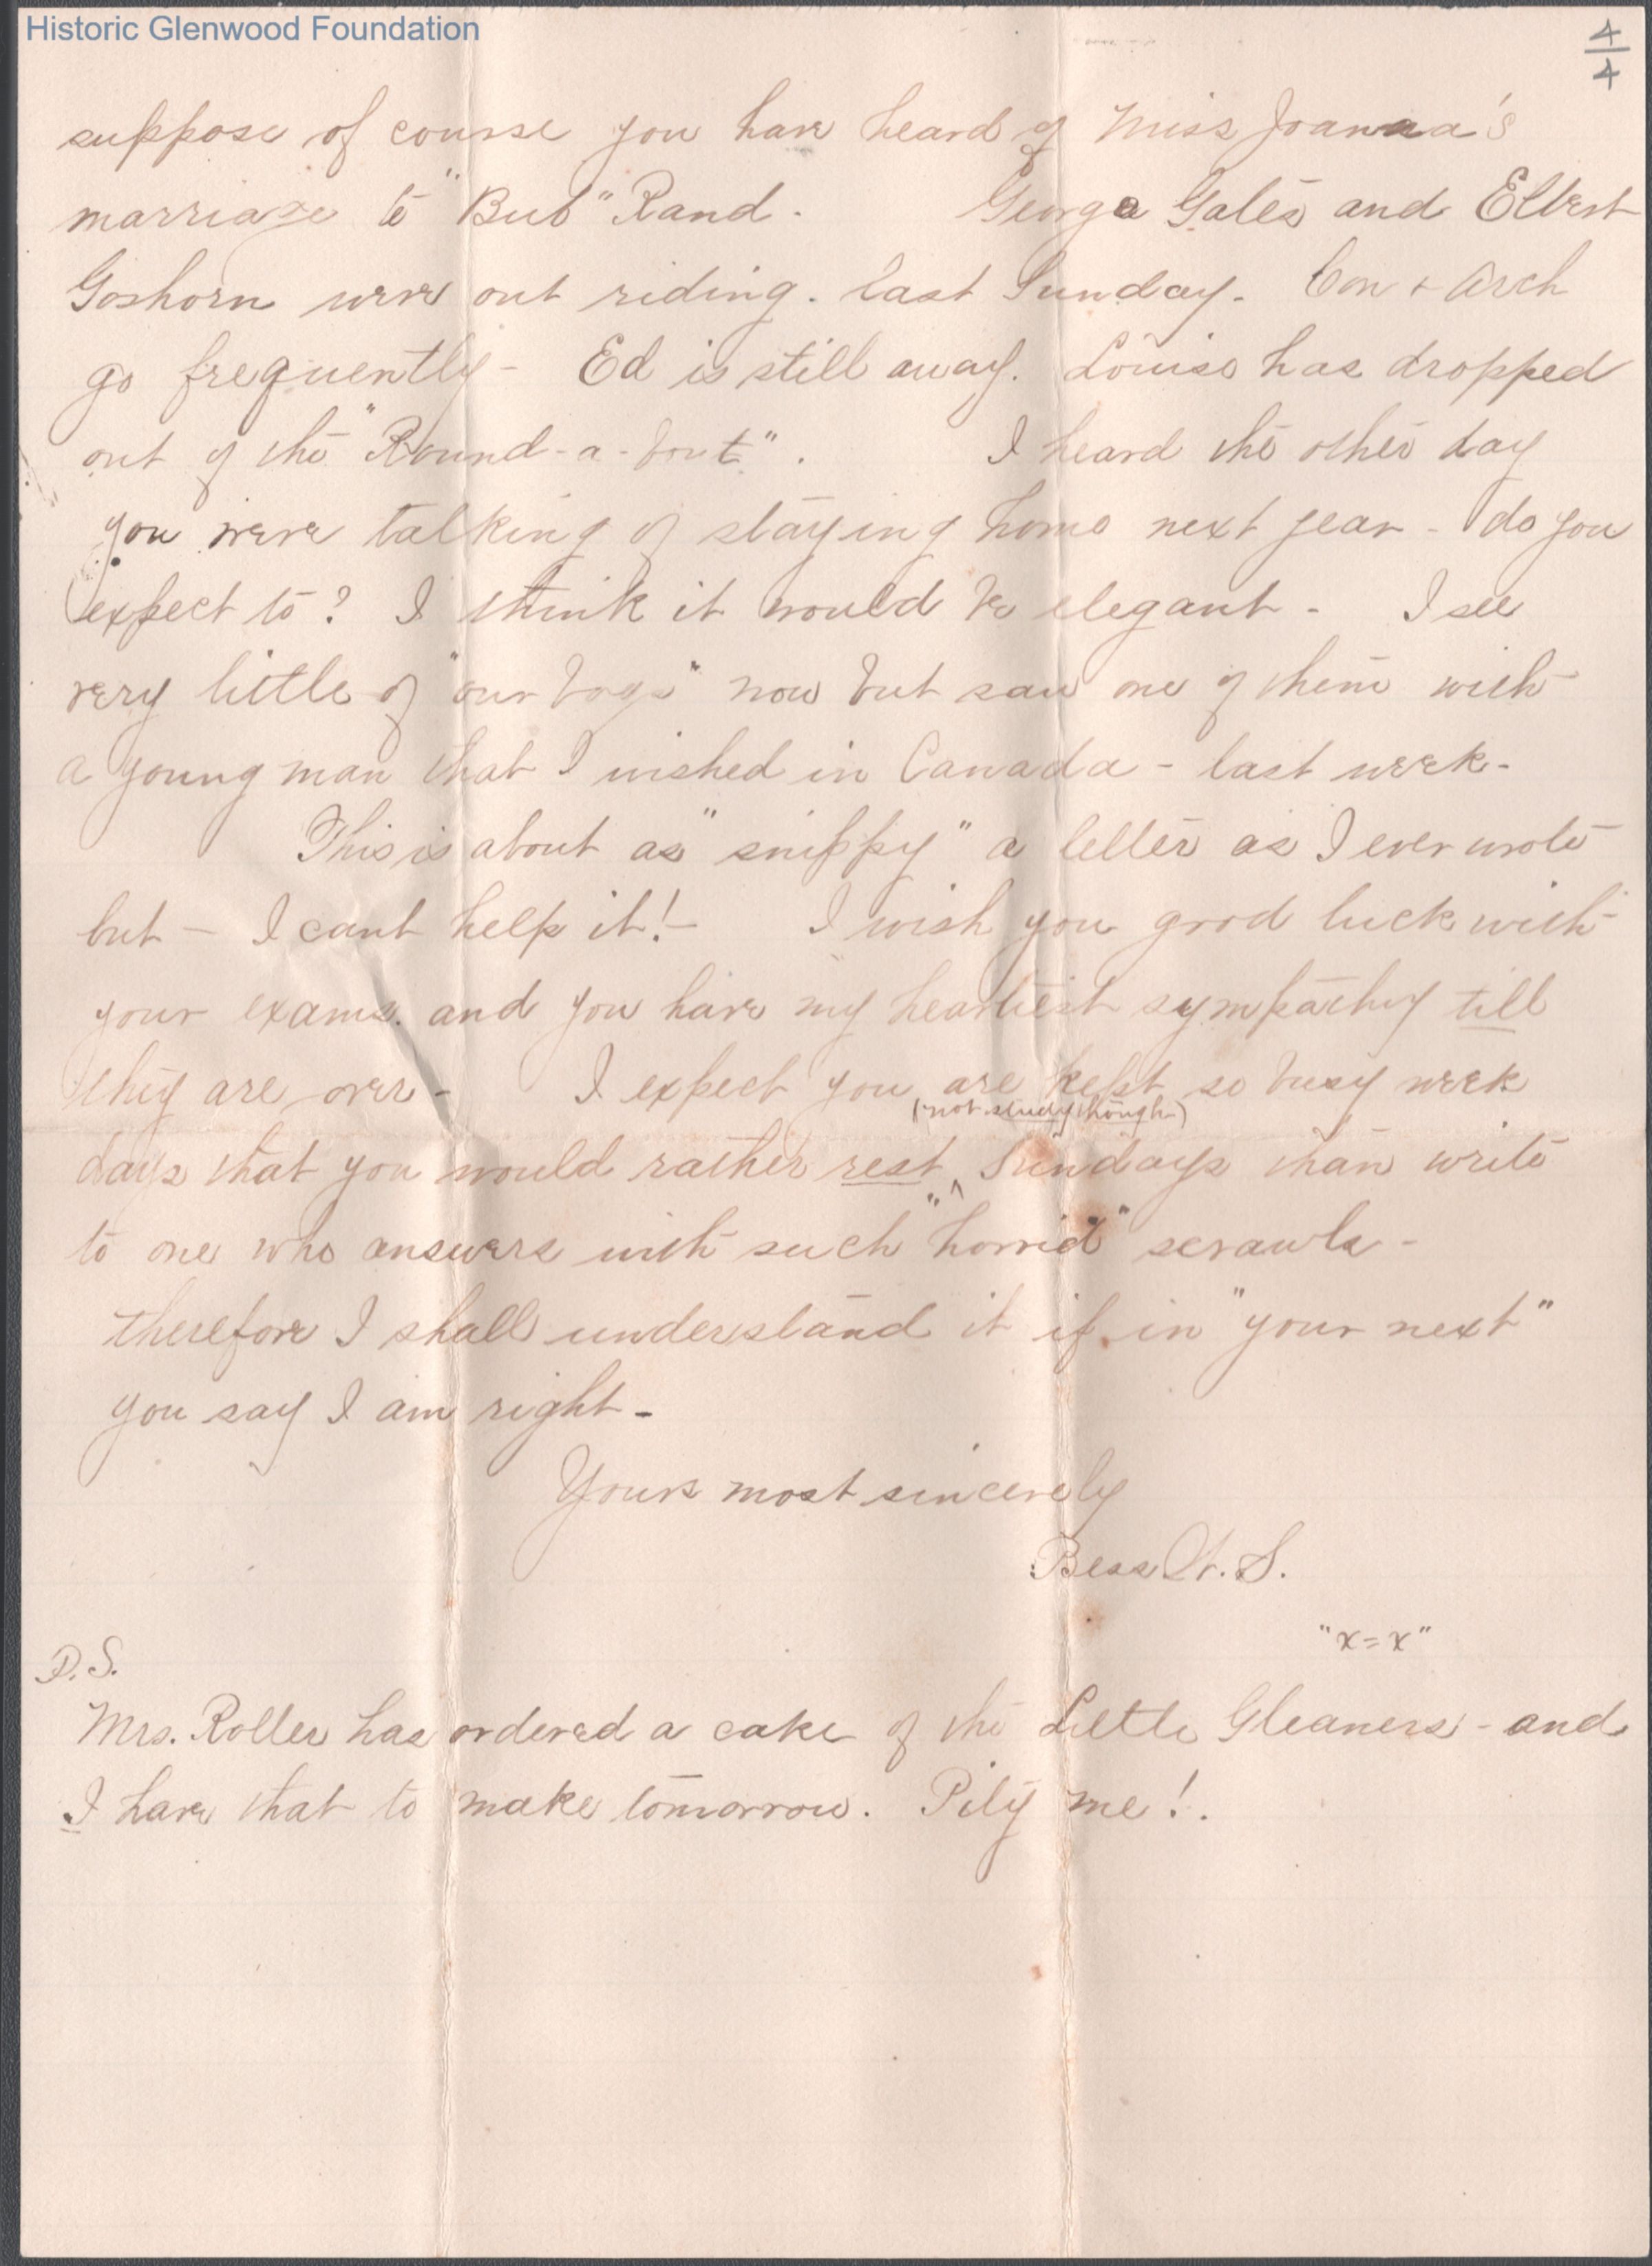 Historic Glenwood Foundation
4/4
suppose of course you have heard of Miss Joanna's
marriage to "Bub" Rand. George Gates and Elbert
Goshorn were out riding. last Sunday. Con + Arch
go frequently - Ed is still away. Louise has dropped
out of the "Round-a-bout". I heard the other day
you were talking of staying home next year - do you
expect to? I think it would be elegant - I see
very little of "our boys" now but saw one of them with
a young man that I wished in Canada - last week -
This is about as "snippy" a letter as I ever wrote
but - I cant help it! - I wish you good luck with
your exams. and you have my heartiest sympathy till
they are over - I expect you are kept so busy week
(not study though)
days that you would rather rest ^ Sundays than write
to one who answers with such "horrid" scrawls -
therefore I shall understand it if in "your next"
you say I am right -
Yours most sincerely
Bess W. S.
"x=x"
P.S.
Mrs. Roller has ordered a cake of the Little Gleaners - and
I have that to make tomorrow. Pity me!.